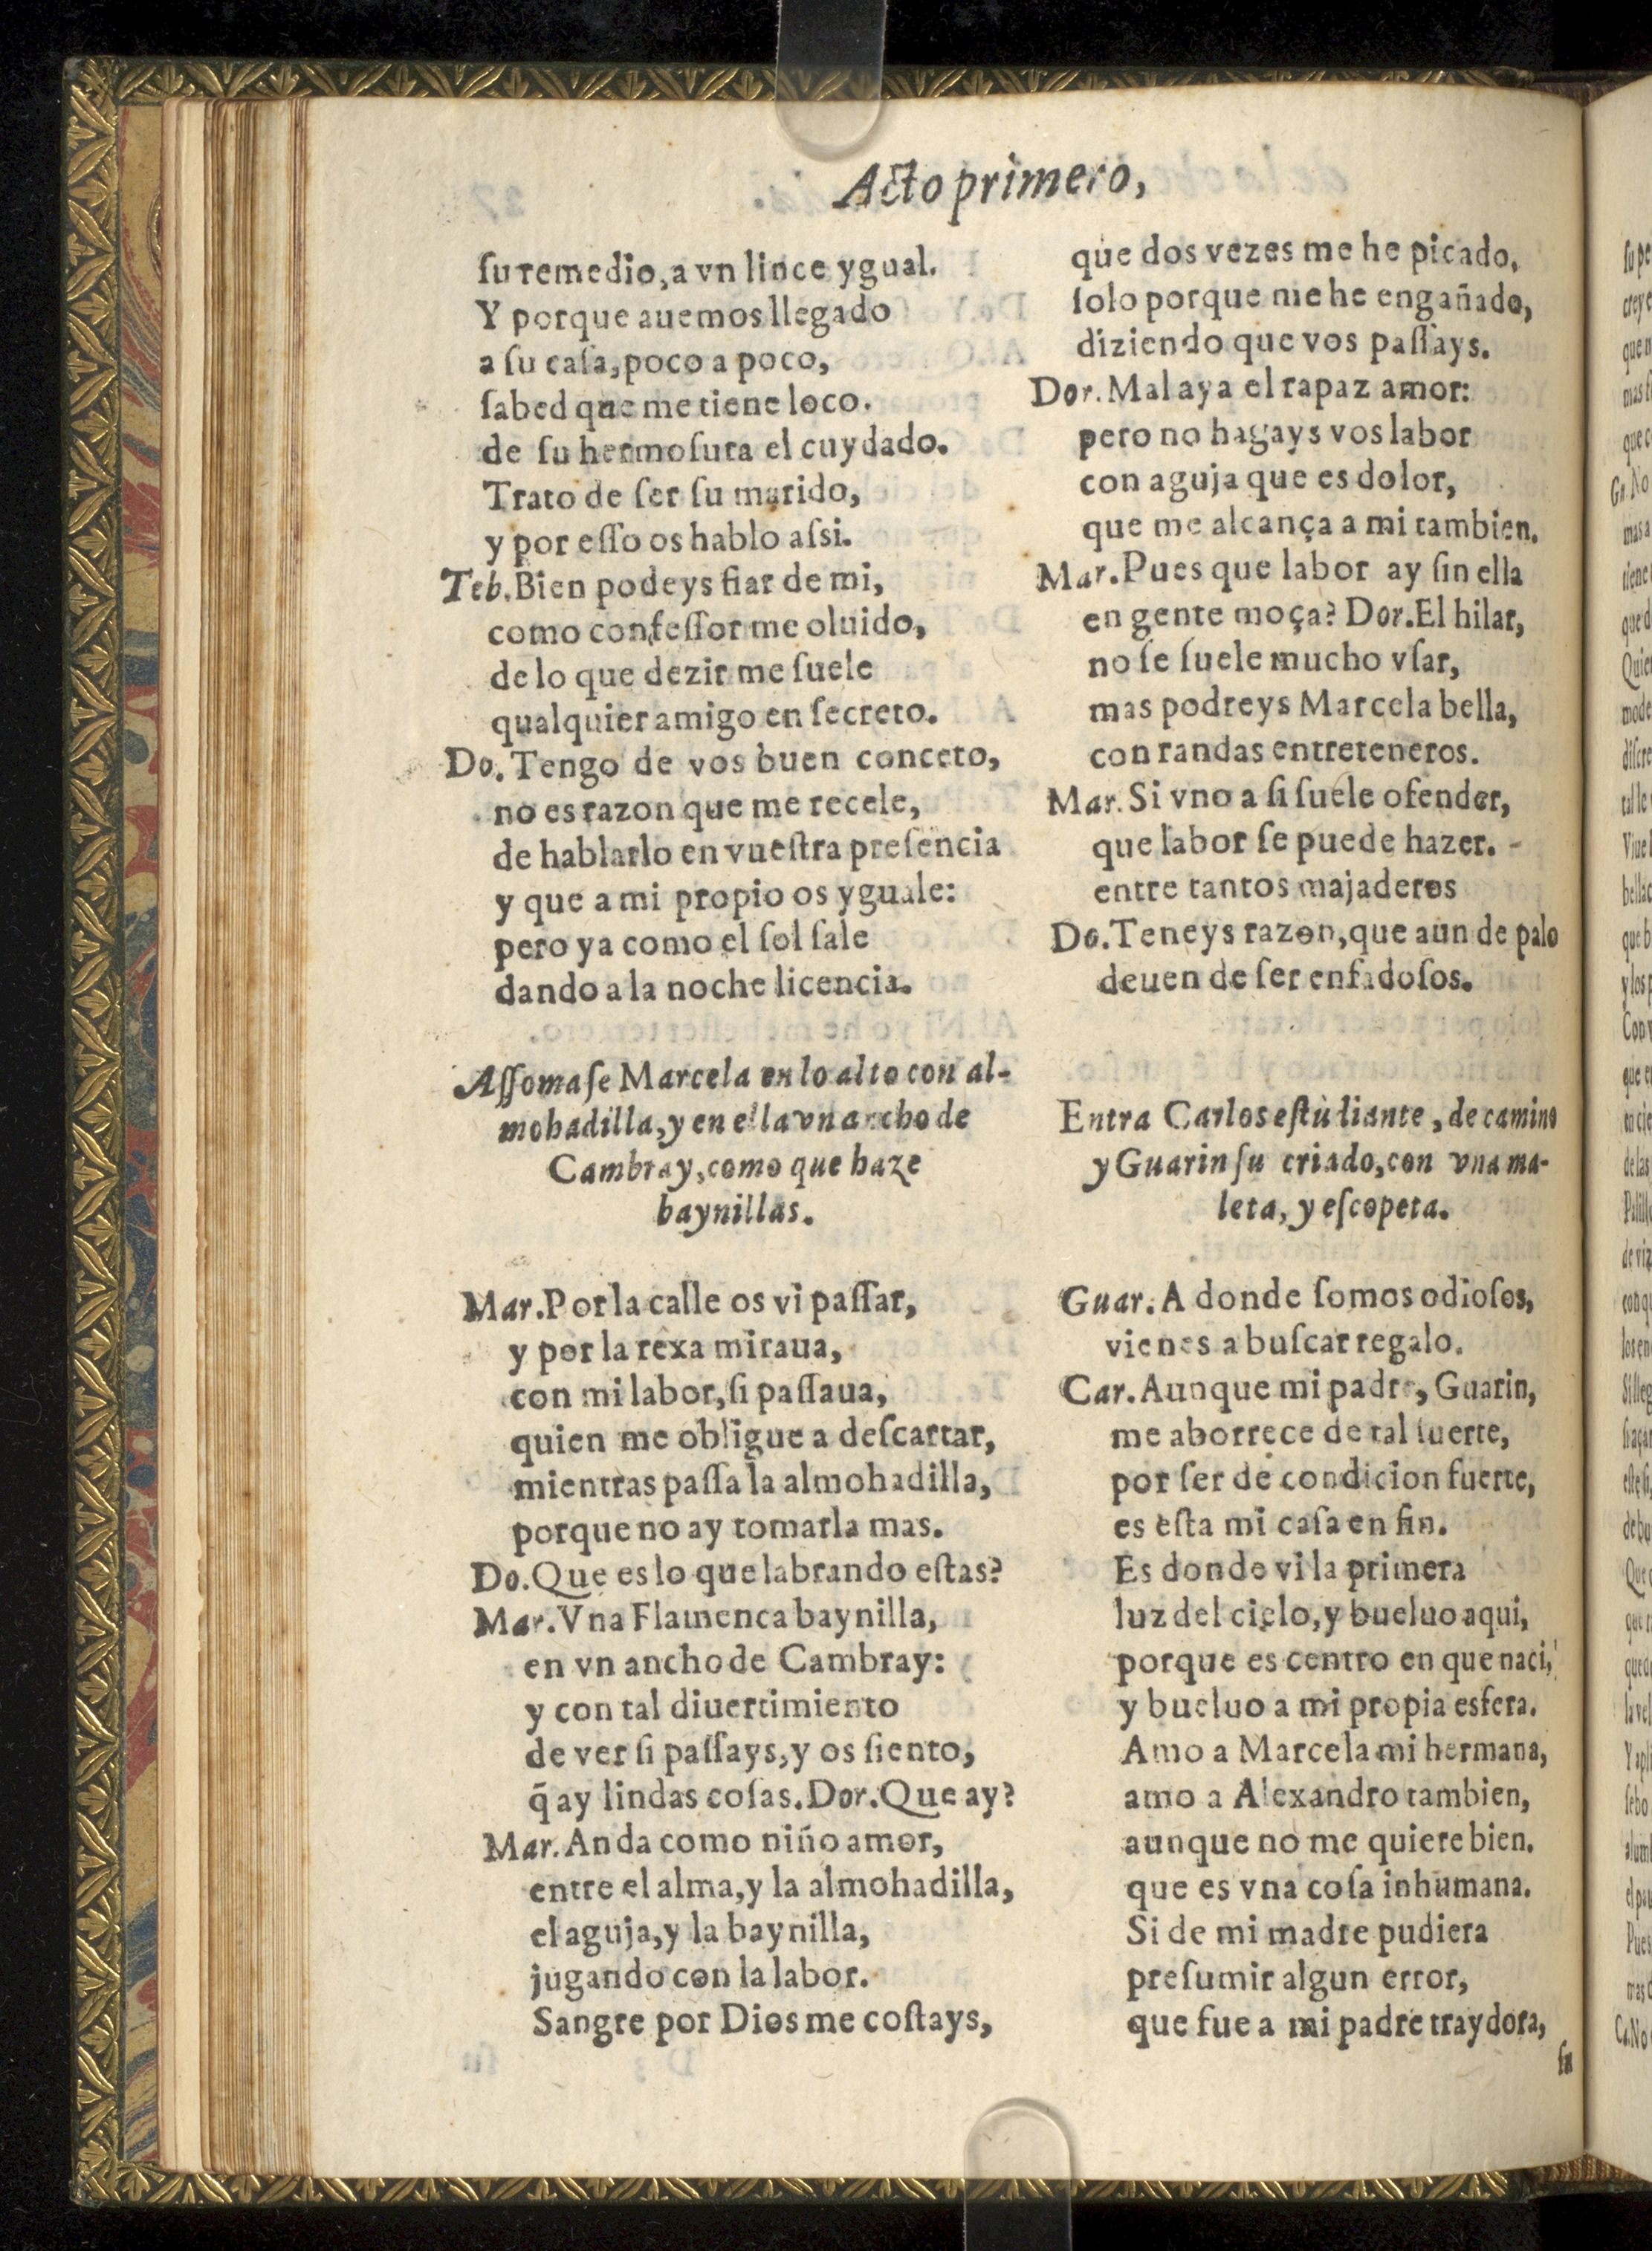 Acto primero,
su remedio, a vn lince ygual.
Y porque auemos llegado
a su casa, poco a poco,
sabed que me tiene loco.
de su hermosura el cuydado.
Trato de ser su marido,
y por esso os hablo assi.
Teb. Bien podeys fiar de mi,
como confessor me oluido,
de lo que dezir me suele
qualquier amigo en secreto.
Do. Tengo de vos buen conceto,
no es razon que me recele,
de hablarlo en vuestra presencia
y que a mi propio os yguale:
pero ya como el sol sale
dando a la noche licencia.
Assomase Marcela en lo alto con al-
mohadilla, y en ella vn ancho de
Cambray, como que haze
baynillas.
Mar. Por la calle os vi passar,
y por la rexa miraua,
con mi labor, si passaua,
quien me obligue a descartar,
mientras passa la almohadilla,
porque no ay tomarla mas.
Do. Que es lo que labrando estas?
Mar. Vna Flamenca baynilla,
en vn ancho de Cambray:
y con tal diuertimiento
de ver si passays, y os siento,
q̃ ay lindas cosas. Dor. Que ay?
Mar. Anda como niño amor,
entre el alma, y la almohadilla,
el aguja, y la baynilla,
jugando con la labor.
Sangre por Dios me costays,
que dos vezes me he picado,
solo porque me he engañado,
diziendo que vos passays.
Dor. Mal aya el rapaz amor:
pero no hagays vos labor
con aguja que es dolor,
que me alcança a mi tambien.
Mar. Pues que labor ay sin ella
en gente moça? Dor. El hilar,
no se suele mucho vsar,
mas podreys Marcela bella,
con randas entreteneros.
Mar. Si vno a si suele ofender,
que labor se puede hazer.
entre tantos majaderos
Do. Teneys razon, que aun de palo
deuen de ser enfadosos.
Entra Carlos estudiante, de camino
y Guarin su criado, con vna ma-
leta, y escopeta.
Guar. A donde somos odiosos,
vienes a buscar regalo.
Car. Aunque mi padre, Guarin,
me aborrece de tal suerte,
por ser de condicion fuerte,
es esta mi casa en fin.
Es donde vi la primera
luz del cielo, y bueluo aqui,
porque es centro en que naci,
y bueluo a mi propia esfera.
Amo a Marcela mi hermana,
amo a Alexandro tambien,
aunque no me quiere bien.
que es vna cosa inhumana.
Si de mi madre pudiera
presumir algun error,
que fue a mi padre traydora,
su